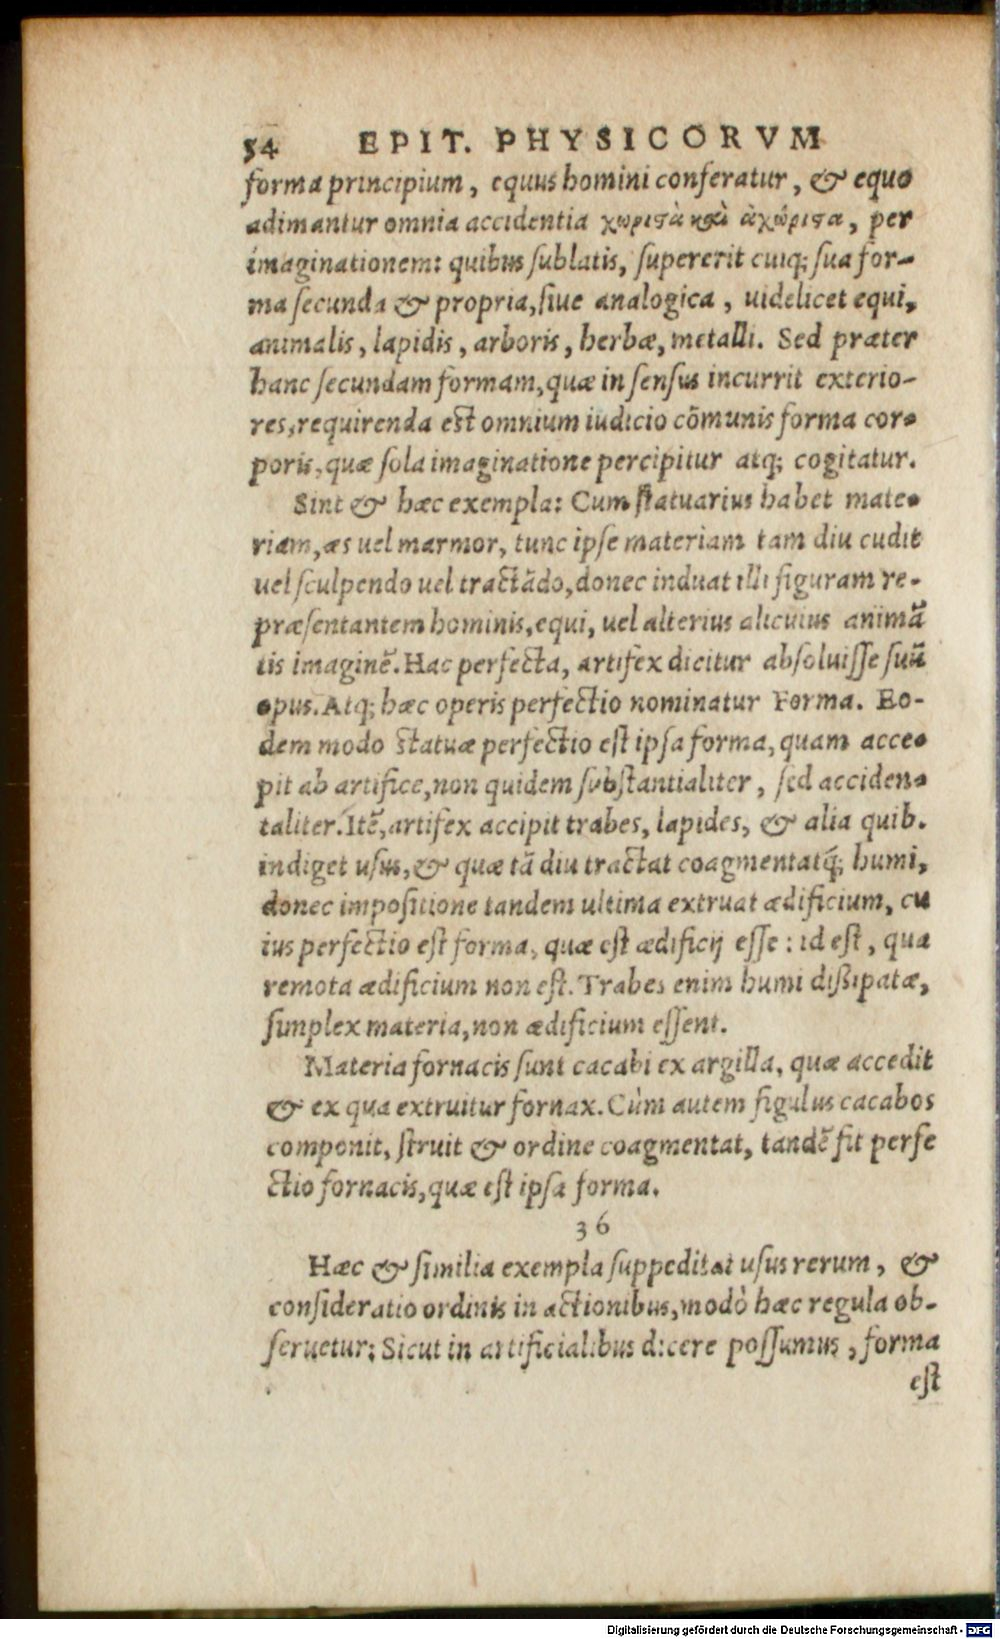 54 EPIT. PHYSICORVM
forma principium, equus homini conferatur, & equo
adimantur omnia accidentia χωριϛὰ καὶ ἀχώριϛα, per
imaginationem: quibus ſublatis, ſupererit cuiq; ſua for-
ma ſecunda & propria, ſiue analogica, uidelicet equi,
animalis, lapidis, arboris, herbæ, metalli. Sed præter
hanc ſecundam formam, quæ in ſenſus incurrit exterio-
res, requirenda est omnium iudicio cōmunis forma cor-
poris, quæ ſola imaginatione percipitur atq; cogitatur.
Sint & hæc exempla: Cum ſtatuarius habet mate-
riam, æs uel marmor, tunc ipſe materiam tam diu cudit
uel ſculpendo uel tractādo, donec induat illi figuram re-
præſentantem hominis, equi, uel alterius alicuius animā
tis imaginē. Hac perfecta, artifex dicitur abſoluiſſe ſuū
opus. Atq; hæc operis perfectio nominatur Forma. Eo-
dem modo statuæ perfectio eſt ipſa forma, quam acce-
pit ab artifice, non quidem ſubſtantialiter, ſed acciden-
taliter. Itē, artifex accipit trabes, lapides, & alia quib.
indiget uſus, & quæ tā diu tractat coagmentatq́; humi,
donec impoſitione tandem ultima extruat ædificium, cu
ius perfectio eſt forma, quæ eſt ædificij eſſe: id eſt, qua
remota ædificium non eſt. Trabes enim humi dißipatæ,
ſimplex materia, non ædificium eſſent.
Materia fornacis ſunt cacabi ex argilla, quæ accedit
& ex qua extruitur fornax. Cùm autem figulus cacabos
componit, ſtruit & ordine coagmentat, tandē fit perfe
ctio fornacis, quæ eſt ipſa forma.
36
Hæc & ſimilia exempla ſuppeditat uſus rerum, &
conſideratio ordinis in actionibus, modò hæc regula ob-
ſeruetur: Sicut in artificialibus dicere poſſumus, forma
eſt
Digitalisierung gefördert durch die Deutsche Forschungsgemeinschaft - DFG